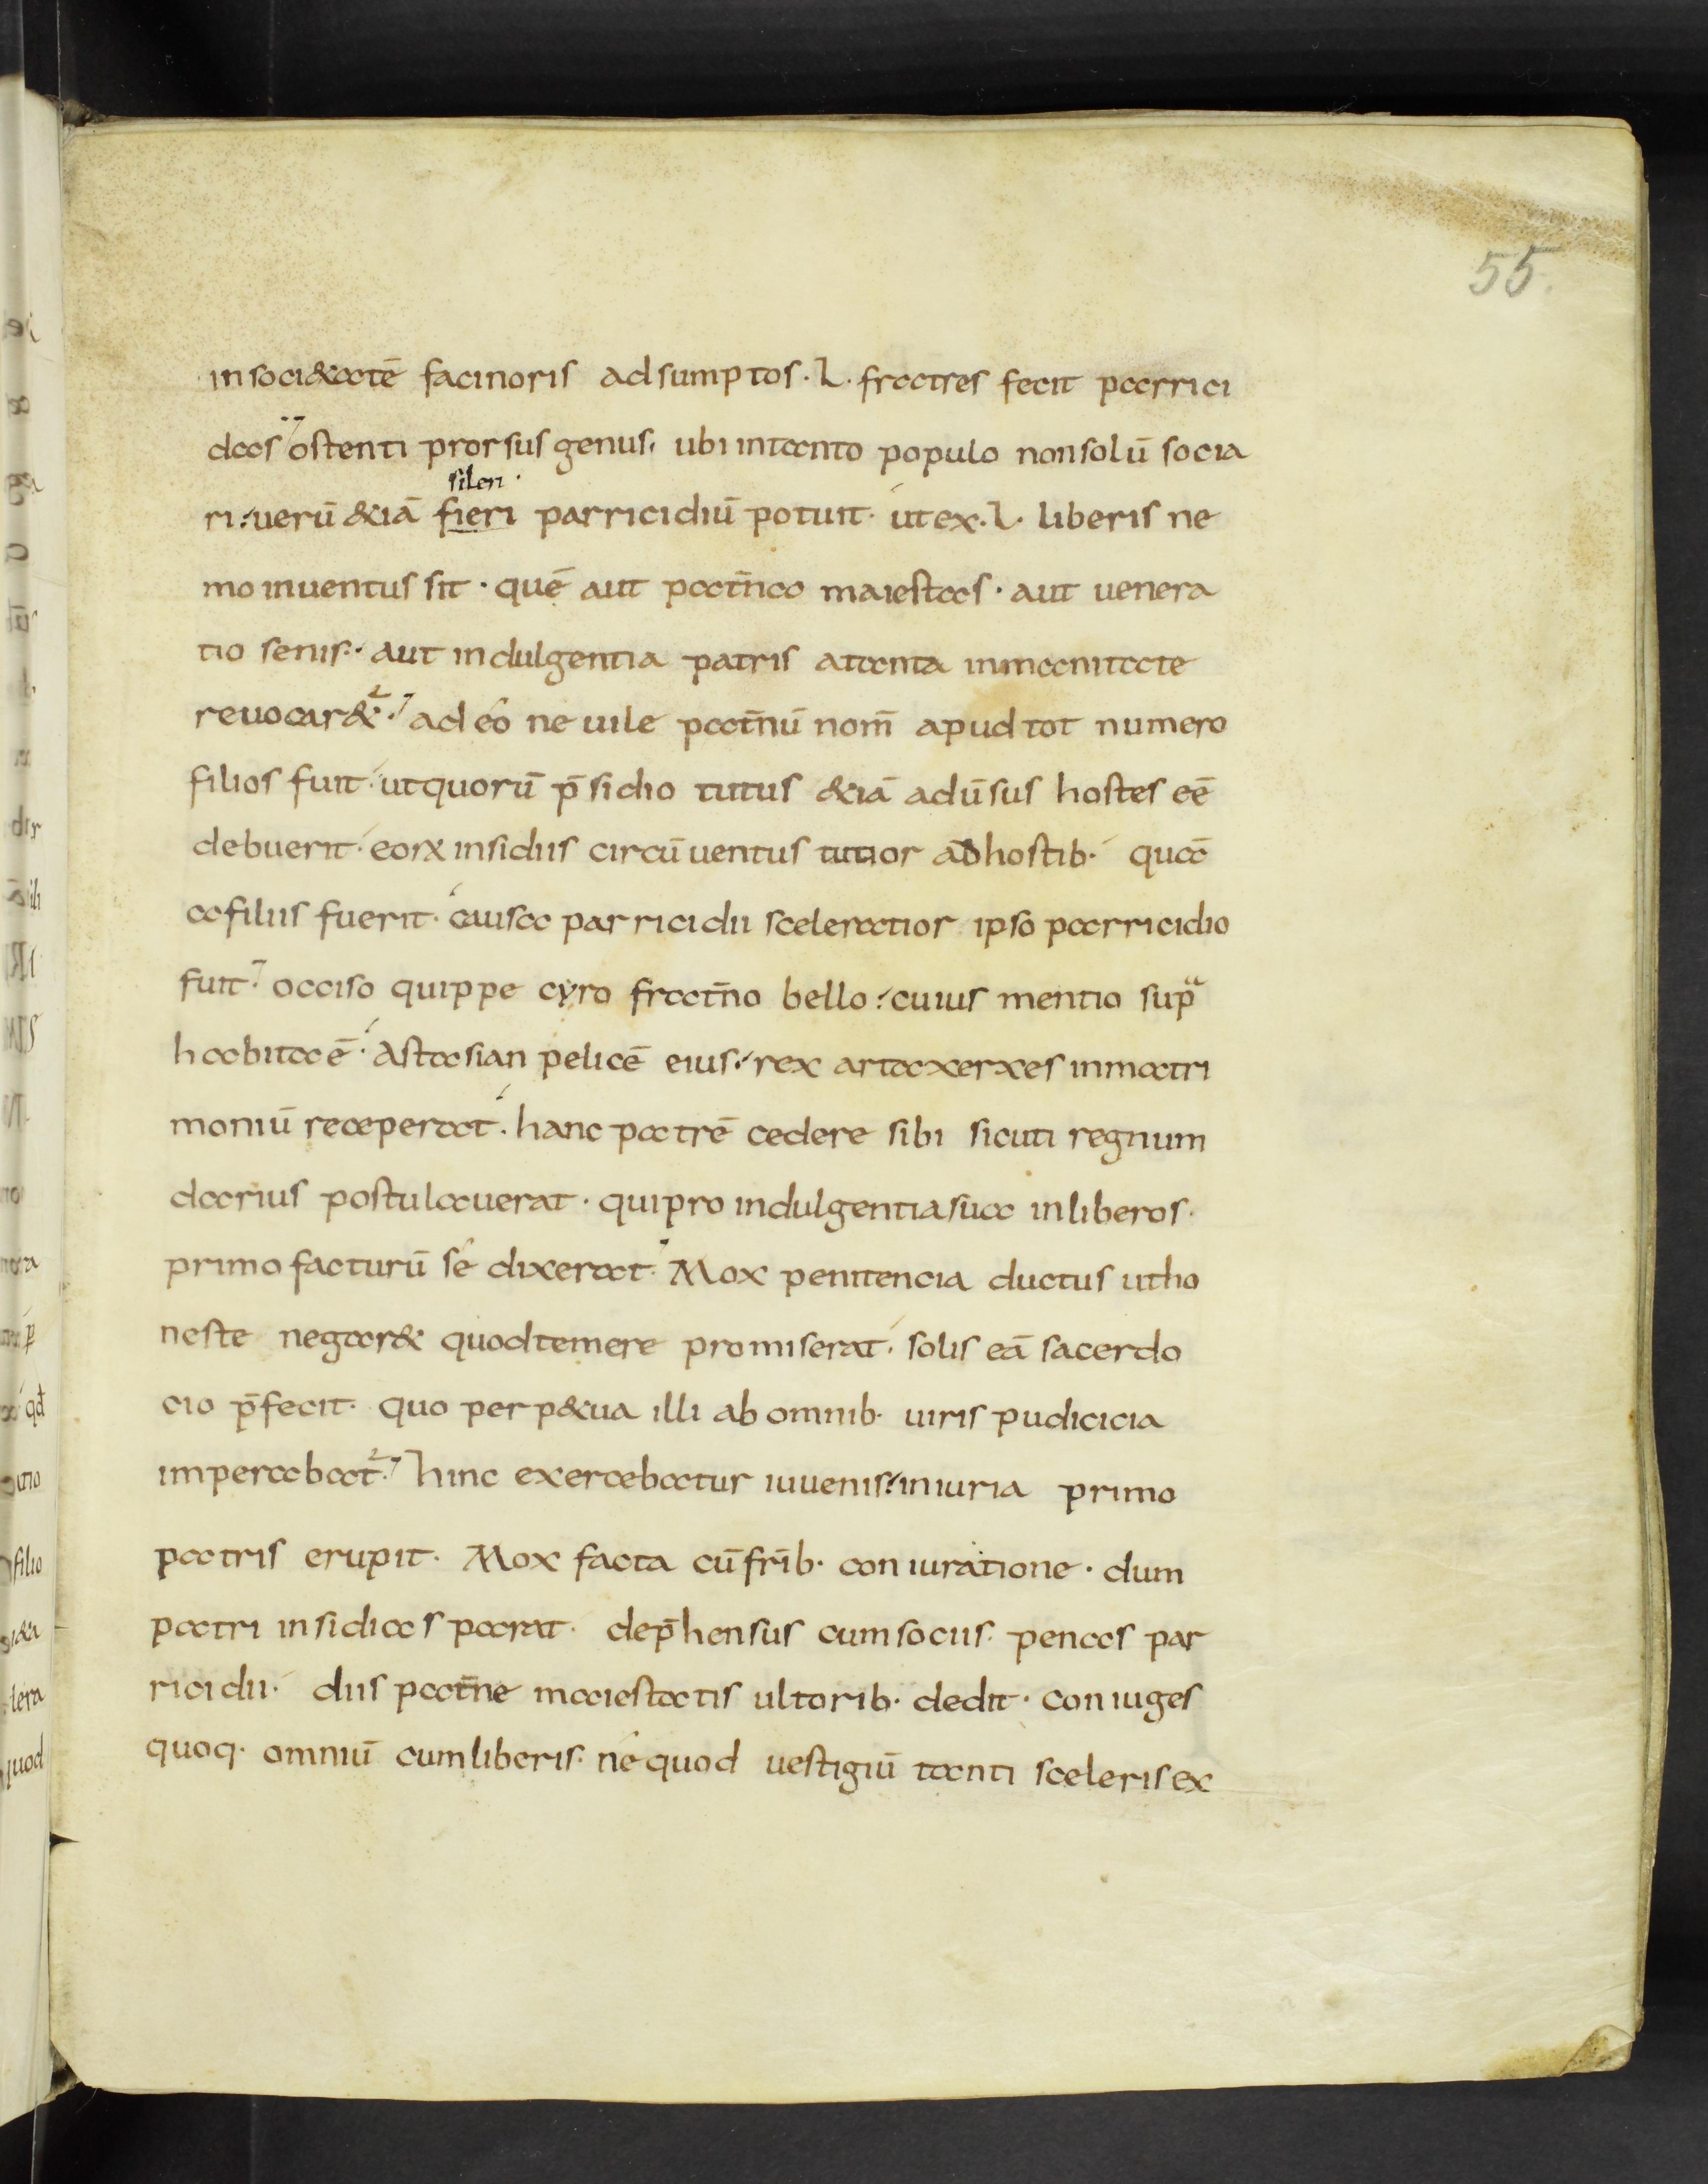 55.
in soci&atē facinoris adsumptos · L · fratres fecit parrici
das ostenti prorsus genus · ubi intanto populo nonsolū socia
sileri ·
ri · uerū &iā fieri parricidiū potuit · ut ex · L · liberis ne
mo inuentus sit · quē aut pat̄na maiestas · aut uenera
tio senis · aut indulgentia patris atanta inmanitate
reuocar& · adeo ne uile pat̄nū nom̄ apud tot numero
filios fuit · utquorū p̄sidio tutus &iā adūsus hostes eē
debuerit · eoꝝ insidiis circūuentus tutior adhostib · quā
afiliis fuerit · causa parricidii sceleratior ipso parricidio
fuit · occiso quippe cyro frat̄no bello · cuius mentio supͣ
habita ē · Astasian pelicē eius · rex artaxerxes inmatri
moniū receperat · hanc patrē cedere sibi sicuti regnum
darius postulauerat · quipro indulgentiasua inliberos ·
primo facturū se dixerat · Mox penitencia ductus utho
neste negar& quodtemere promiserat · solis eā sacerdo
cio p̄fecit · quo perp&ua illi ab omnib · uiris pudicicia
imperabat · hinc exacerbatur iuuenis · iniuria primo
patris erupit · Mox facta cū fr̄ib · coniuratione · dum
patri insidias parat · dep̄hensus cumsociis · penas par
ricidii · diis pat̄ne maiestatis ultorib · dedit · Coniuges
quoq · omniū cumliberis · ne quod uestigiū tanti sceleris ex